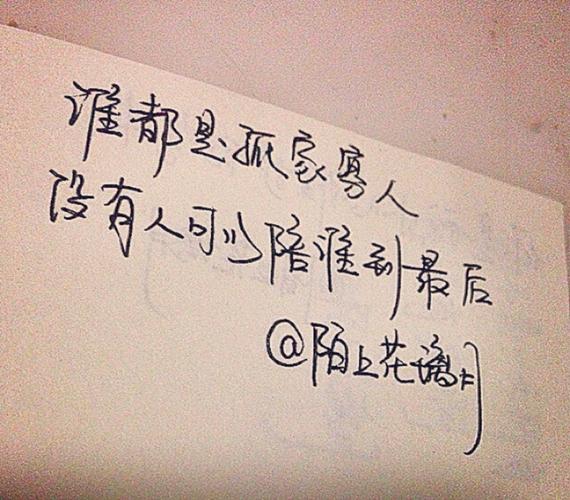 谁都是孤家寡人
没有人可以陪谁到最后
@陌上花璃